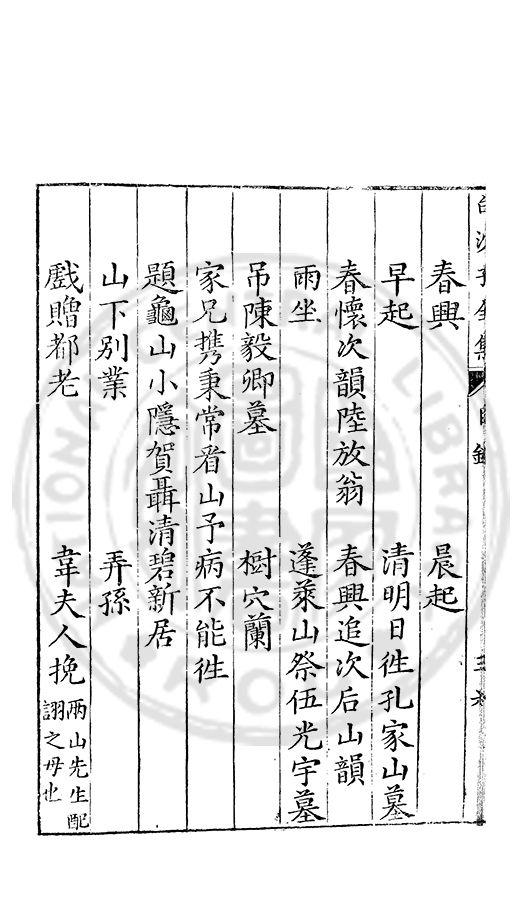 白沙子全集 目錄
春興 晨起
早起 清明日徃孔家山墓
春懷次韻陸放翁 春興追次后山韻
雨坐 蓬萊山祭伍光宇墓
吊陳毅卿墓 樹穴蘭
家兄携秉常看山予病不能徃
題龜山小隱賀聶清碧新居
山下別業 弄孫
戲贈都老 韋夫人挽 兩山先生配
詡之母也